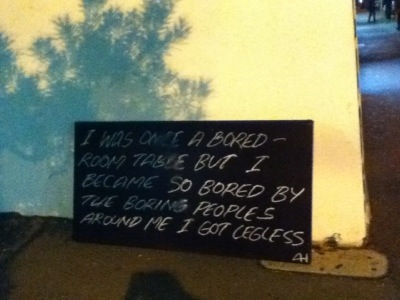 I WAS ONCE A BORED-
ROOM TABLE BUT I
BECAME SO BORED BY
THE BORING PEOPLES
AROUND ME I GOT LEGLESS
AH